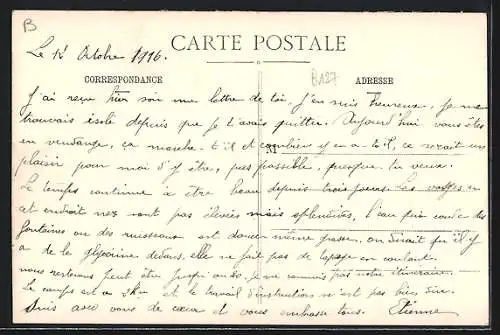 B
Le 12 Octobre 1916.
CARTE POSTALE
B127
CORRESPONDANCE
ADRESSE
J'ai reçu hier soir une lettre de toi, J'en suis heureux, je me
trouvais isolé depuis que je t'avais quittée. Aujourd'hui vous êtes
M
en vendange, ça marche-t-il et combien y en a-t-il, ce serait un
plaisir pour moi d'y être, pas possible, puisque tu veux.
Le temps continue à être beau depuis trois jours. Les vosges en
cet endroit nes sont pas élevées mais splendides, l'eau qui coule des
fontaines ou des ruisseaux est douce même grasse, on dirait qu'il y
a de la glycérine dedans, elle ne fait pas de tapage en coulant.
nous resterons peut être jusqu'au je ne connais pas notre itinéraire.
Le camp est à 3km et le travail d'instructions n'est pas bien dur.
Suis avec vous de cœur et vous embrasse tous. Etienne